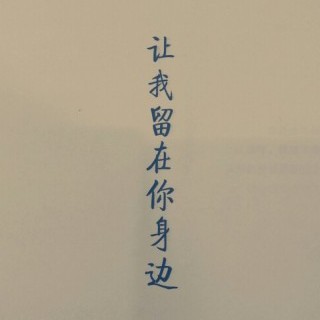 让我留在你身边